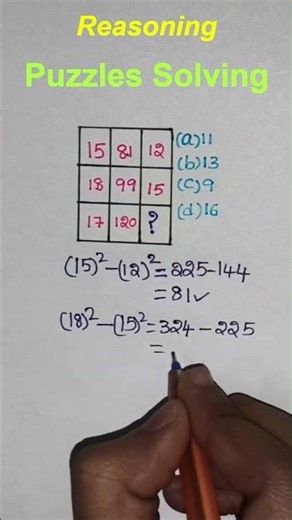 Reasoning
Puzzles Solving
15 81 12 (a) 11
(b) 13
18 99 15 (c) 9
17 120 ? (d) 16
(15)² – (12)² = 225 – 144
= 81✓
(18)² – (15)² = 324 – 225
=